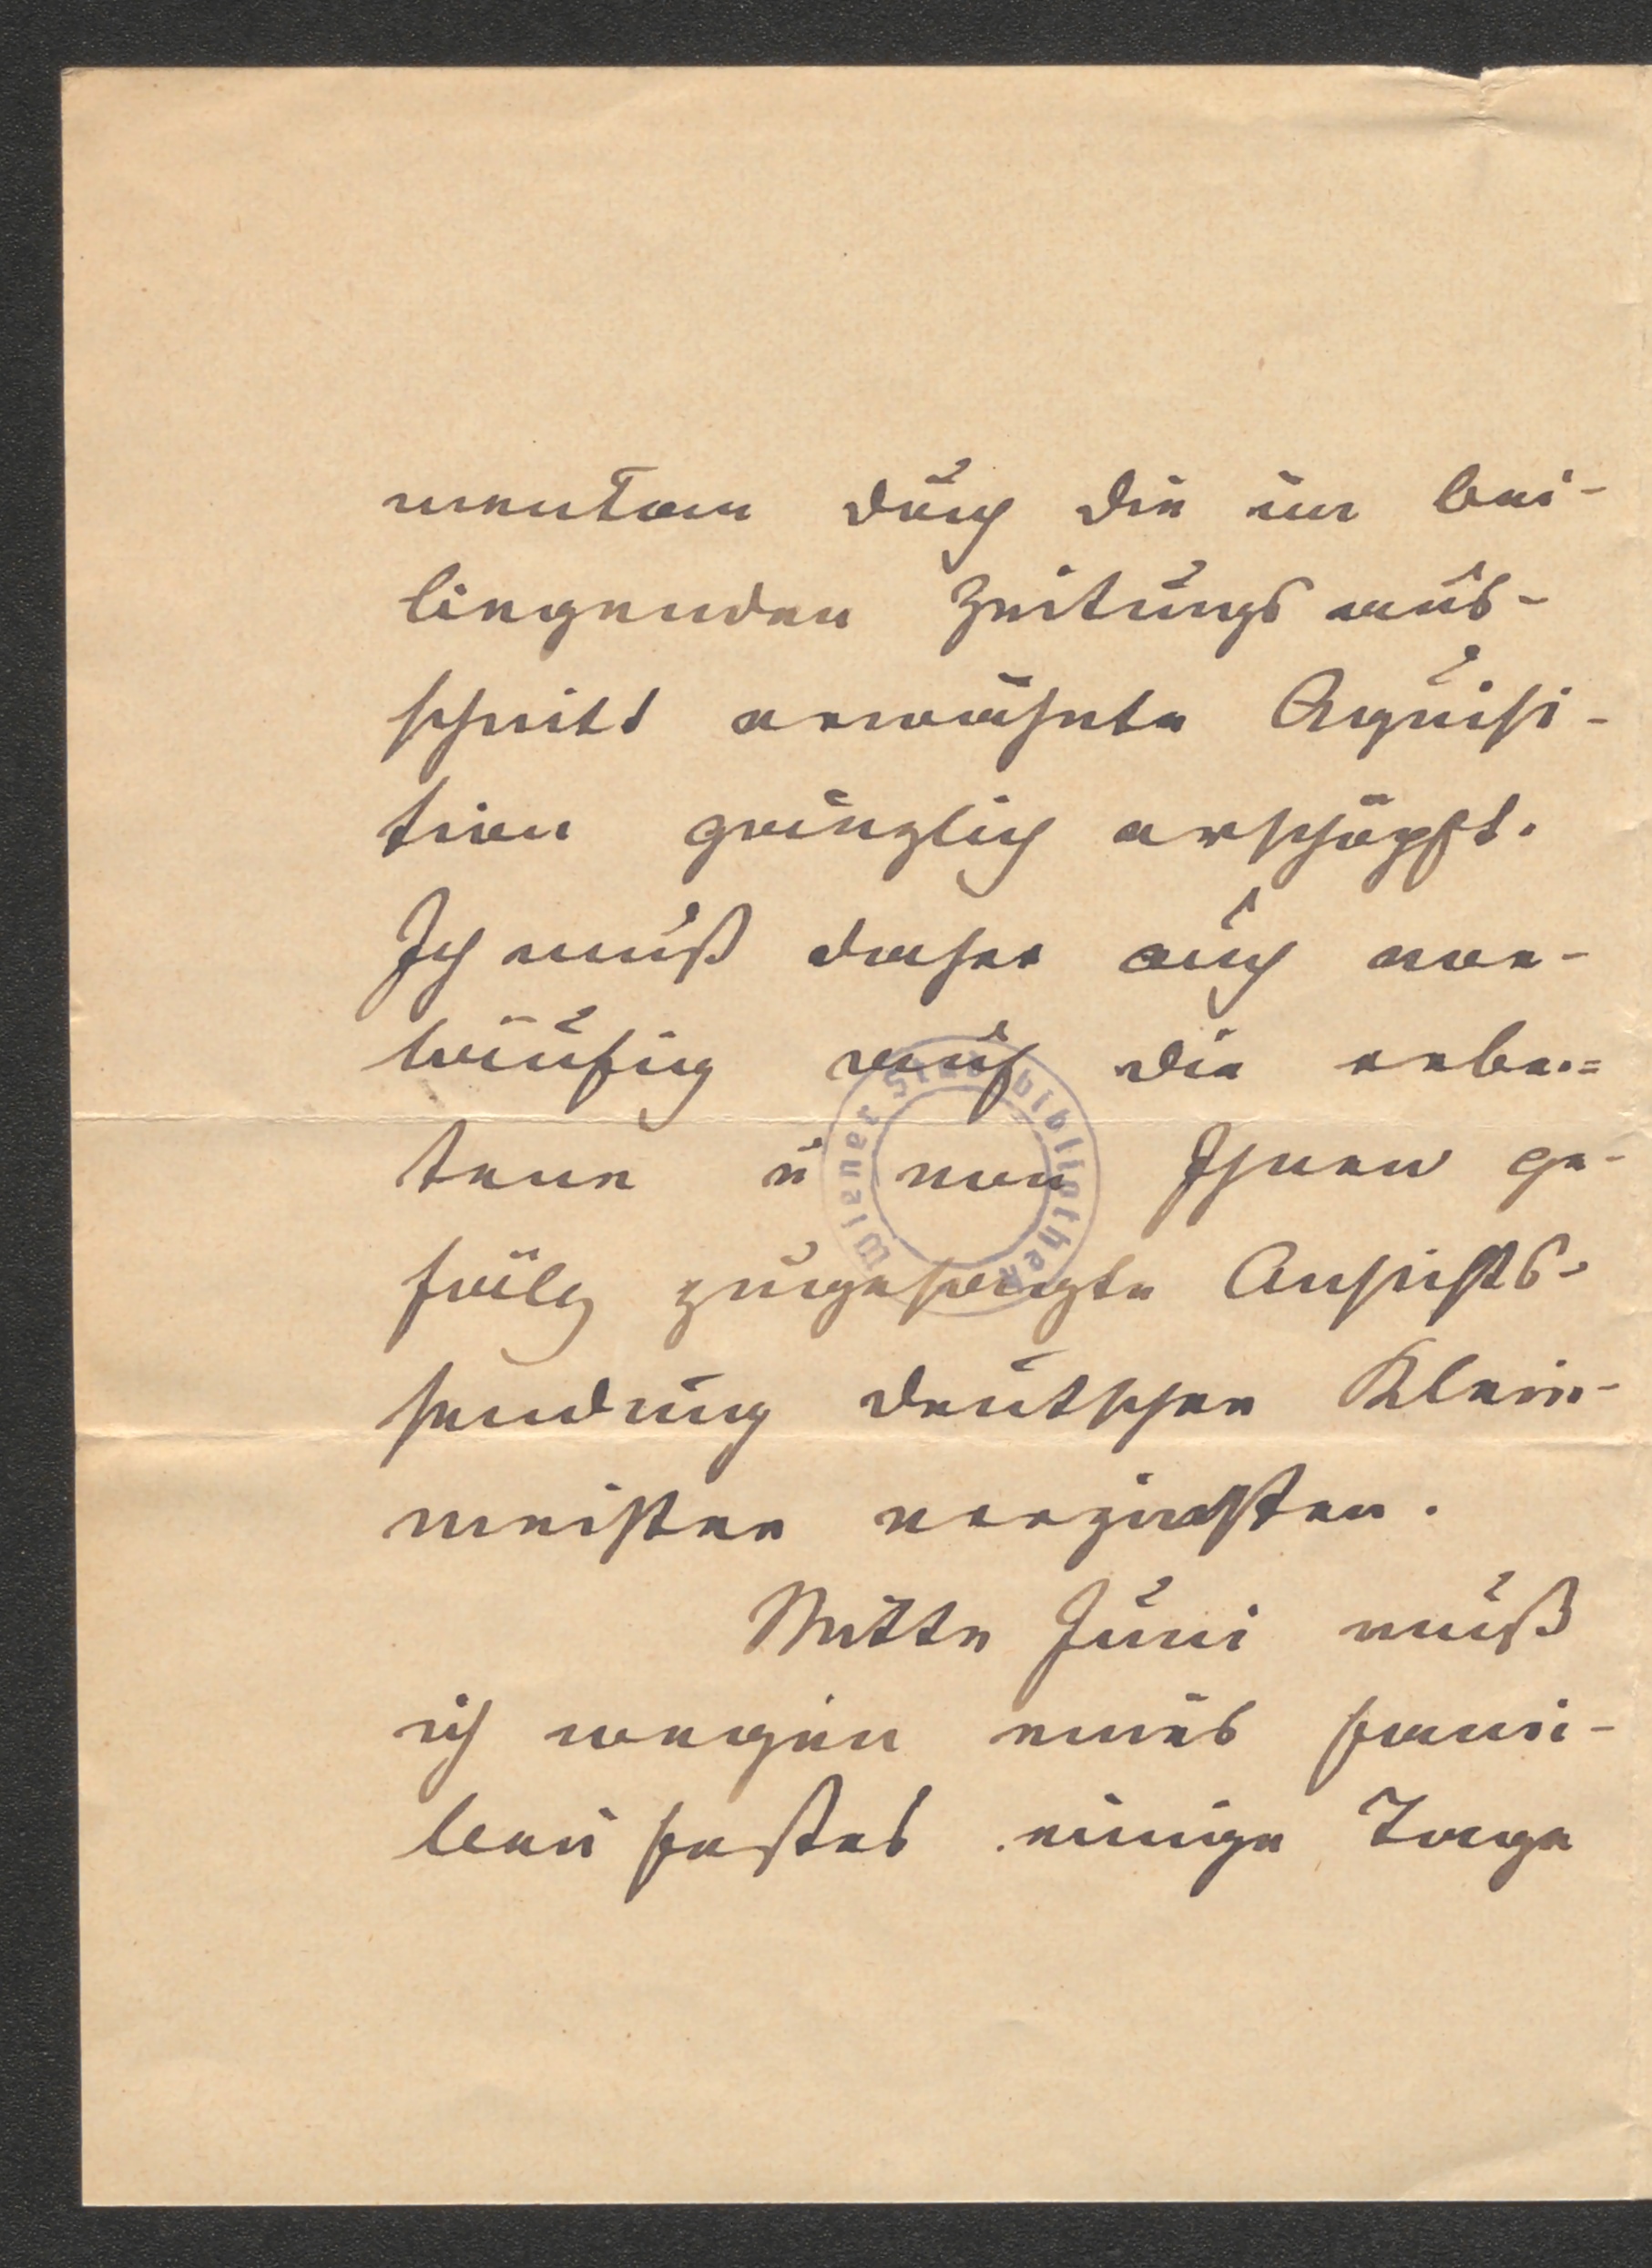 mentan durch die im bei-
liegenden Zeitungsaus-
schnitt erwähnte Aquisi-
tion gänzlich erschöpft.
Ich muß daher auch vor-
läufig auf die erbe-=
tene u von Ihnen ge-
fällg zugesagte Ansichts-
sendung deutscher Klein-
meister verzichten.
Mitte Juni muß
ich wegen eines Fami-
lien festes einige Tage
Wiener Stadtbibliothek